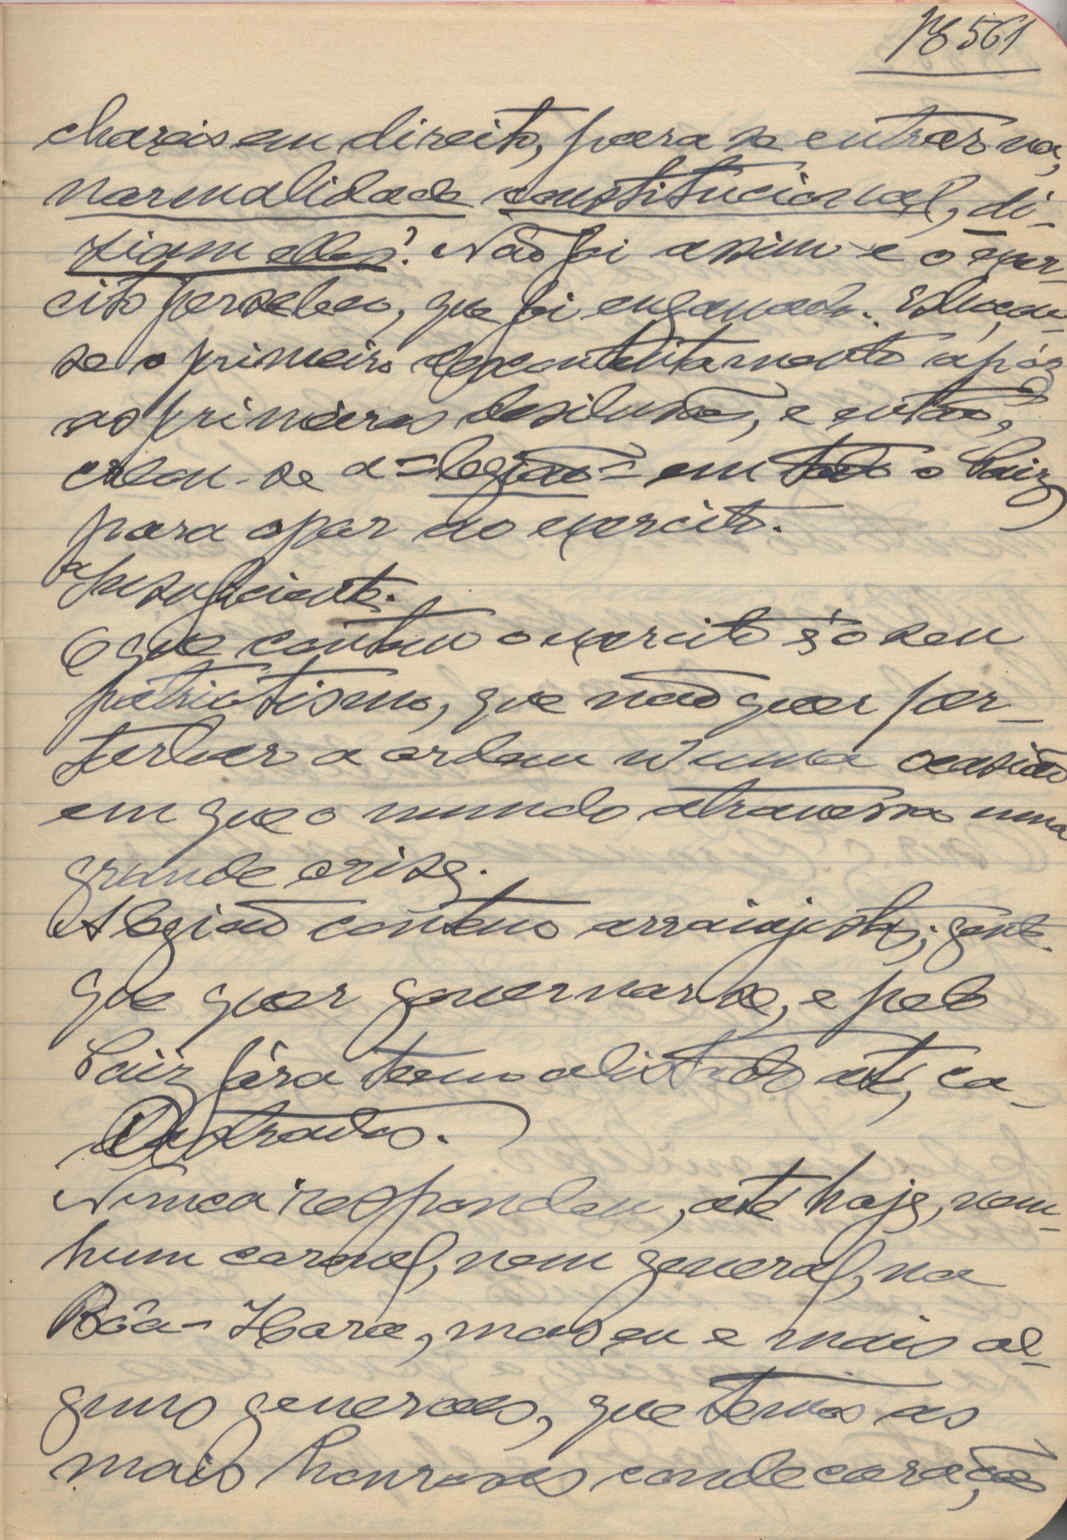 pg 561
chareis em direito, para se entrar na,
normalidade constitucional, di-
ziam elles? Não foi assim e o exer-
cito percebeu, que foi enganado.
se o primeiro descontentamento após
as primeiras desilusões, e então,
creou-se a = legião = em todo o Paiz
para opor ao exercito.
O que conteve o exercito é o seu
patriotismo, que não quer per-
turbar a ordem n'uma ocasião
em que o mundo atravessa uma
grande crise.
A legião contem arraiajistas; gente
que quer governar-se, e pelo
Paiz fóra tem alistado até, ca-
dastrados.
Nunca respondeu, até hoje, nem-
hum coronel, nem general, na
Bôa-Hora, mas eu e mais al-
guns generaes, que temos as
mais honrosas condecorações